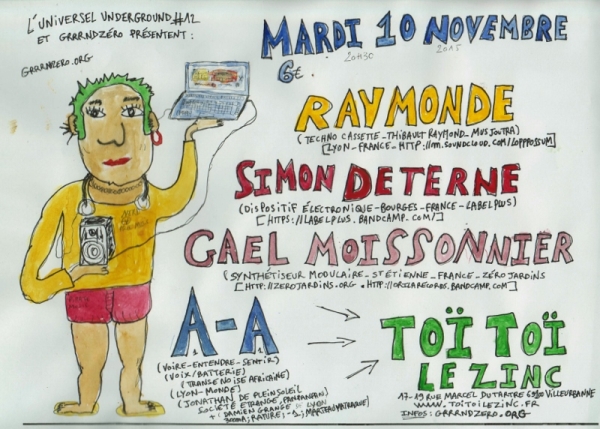 L'UNIVERSEL UNDERGROUND #12
ET GRRRNDZÉRO PRÉSENTENT :
GRRRNDZERO.ORG
MARDI 10 NOVEMBRE
20H30 2015
6€.
RAYMONDE
(TECHNO CASSETTE_THIBAULT RAYMOND_MUSJOUTRA)
[LYON_FRANCE_HTTP://M.SOUNDCLOUD.COM/LOPPOSSUM]
SIMON DETERNE
(DISPOSITIF ÉLECTRONIQUE_BOURGES_FRANCE_LABELPLUS)
[HTTPS://LABELPLUS.BANDCAMP.COM/]
GAEL MOISSONNIER
(SYNTHÉTISEUR MODULAIRE_ST ÉTIENNE_FRANCE_ZÉRO JARDINS
[HTTP://ZEROJARDINS.ORG . HTTP://ORZLARECORDS.BANDCAMP.COM]
A-A
(VOIRE_ENTENDRE_SENTIR)
(VOIX/BATTERIE)
(TRANSE NOISE AFRICAINE)
(LYON_MONDE)
(JONATHAN DE PLEIN SOLEIL
SOCIÉTÉ ÉTRANGE,
+ : DAMIEN GRANGE DE LYON
TOÏ TOÏ
LE ZINC
17-19 RUE MARCEL DUTARTRE 69100 VILLEURBANNE
WWW.TOITOILEZINC.FR
INFOS: GRRRNDZERO.ORG